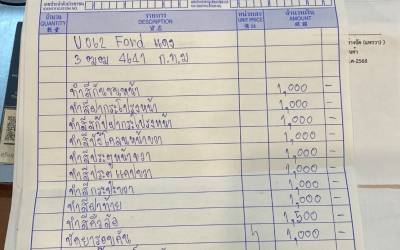 จำนวน QUANTITY 數量 รายการ DESCRIPTION 貨名 หน่วยละ UNIT PRICE จำนวนเงิน AMOUNT
U062 Ford แดง
3 ขฆฆ 4641 ก.ท.ม
ทำสีกันชนหน้า 1,000 –
ทำสีฝากระโปรงหน้า 1,000 –
ทำสีสกู๊ปฝากระโปรงหน้า 1,000 –
ทำสีบังโคลนหน้าขวา 1,000 –
ทำสีประตูหน้าขวา 1,000 –
ทำสีประตูแคปขวา 1,000 –
ทำสีกระบะขวา 1,000 –
ทำสีฝาท้าย 1,000 –
ทำสีคิ้วล้อ 1,500 –
ขัดยารอบคัน 1,000 –